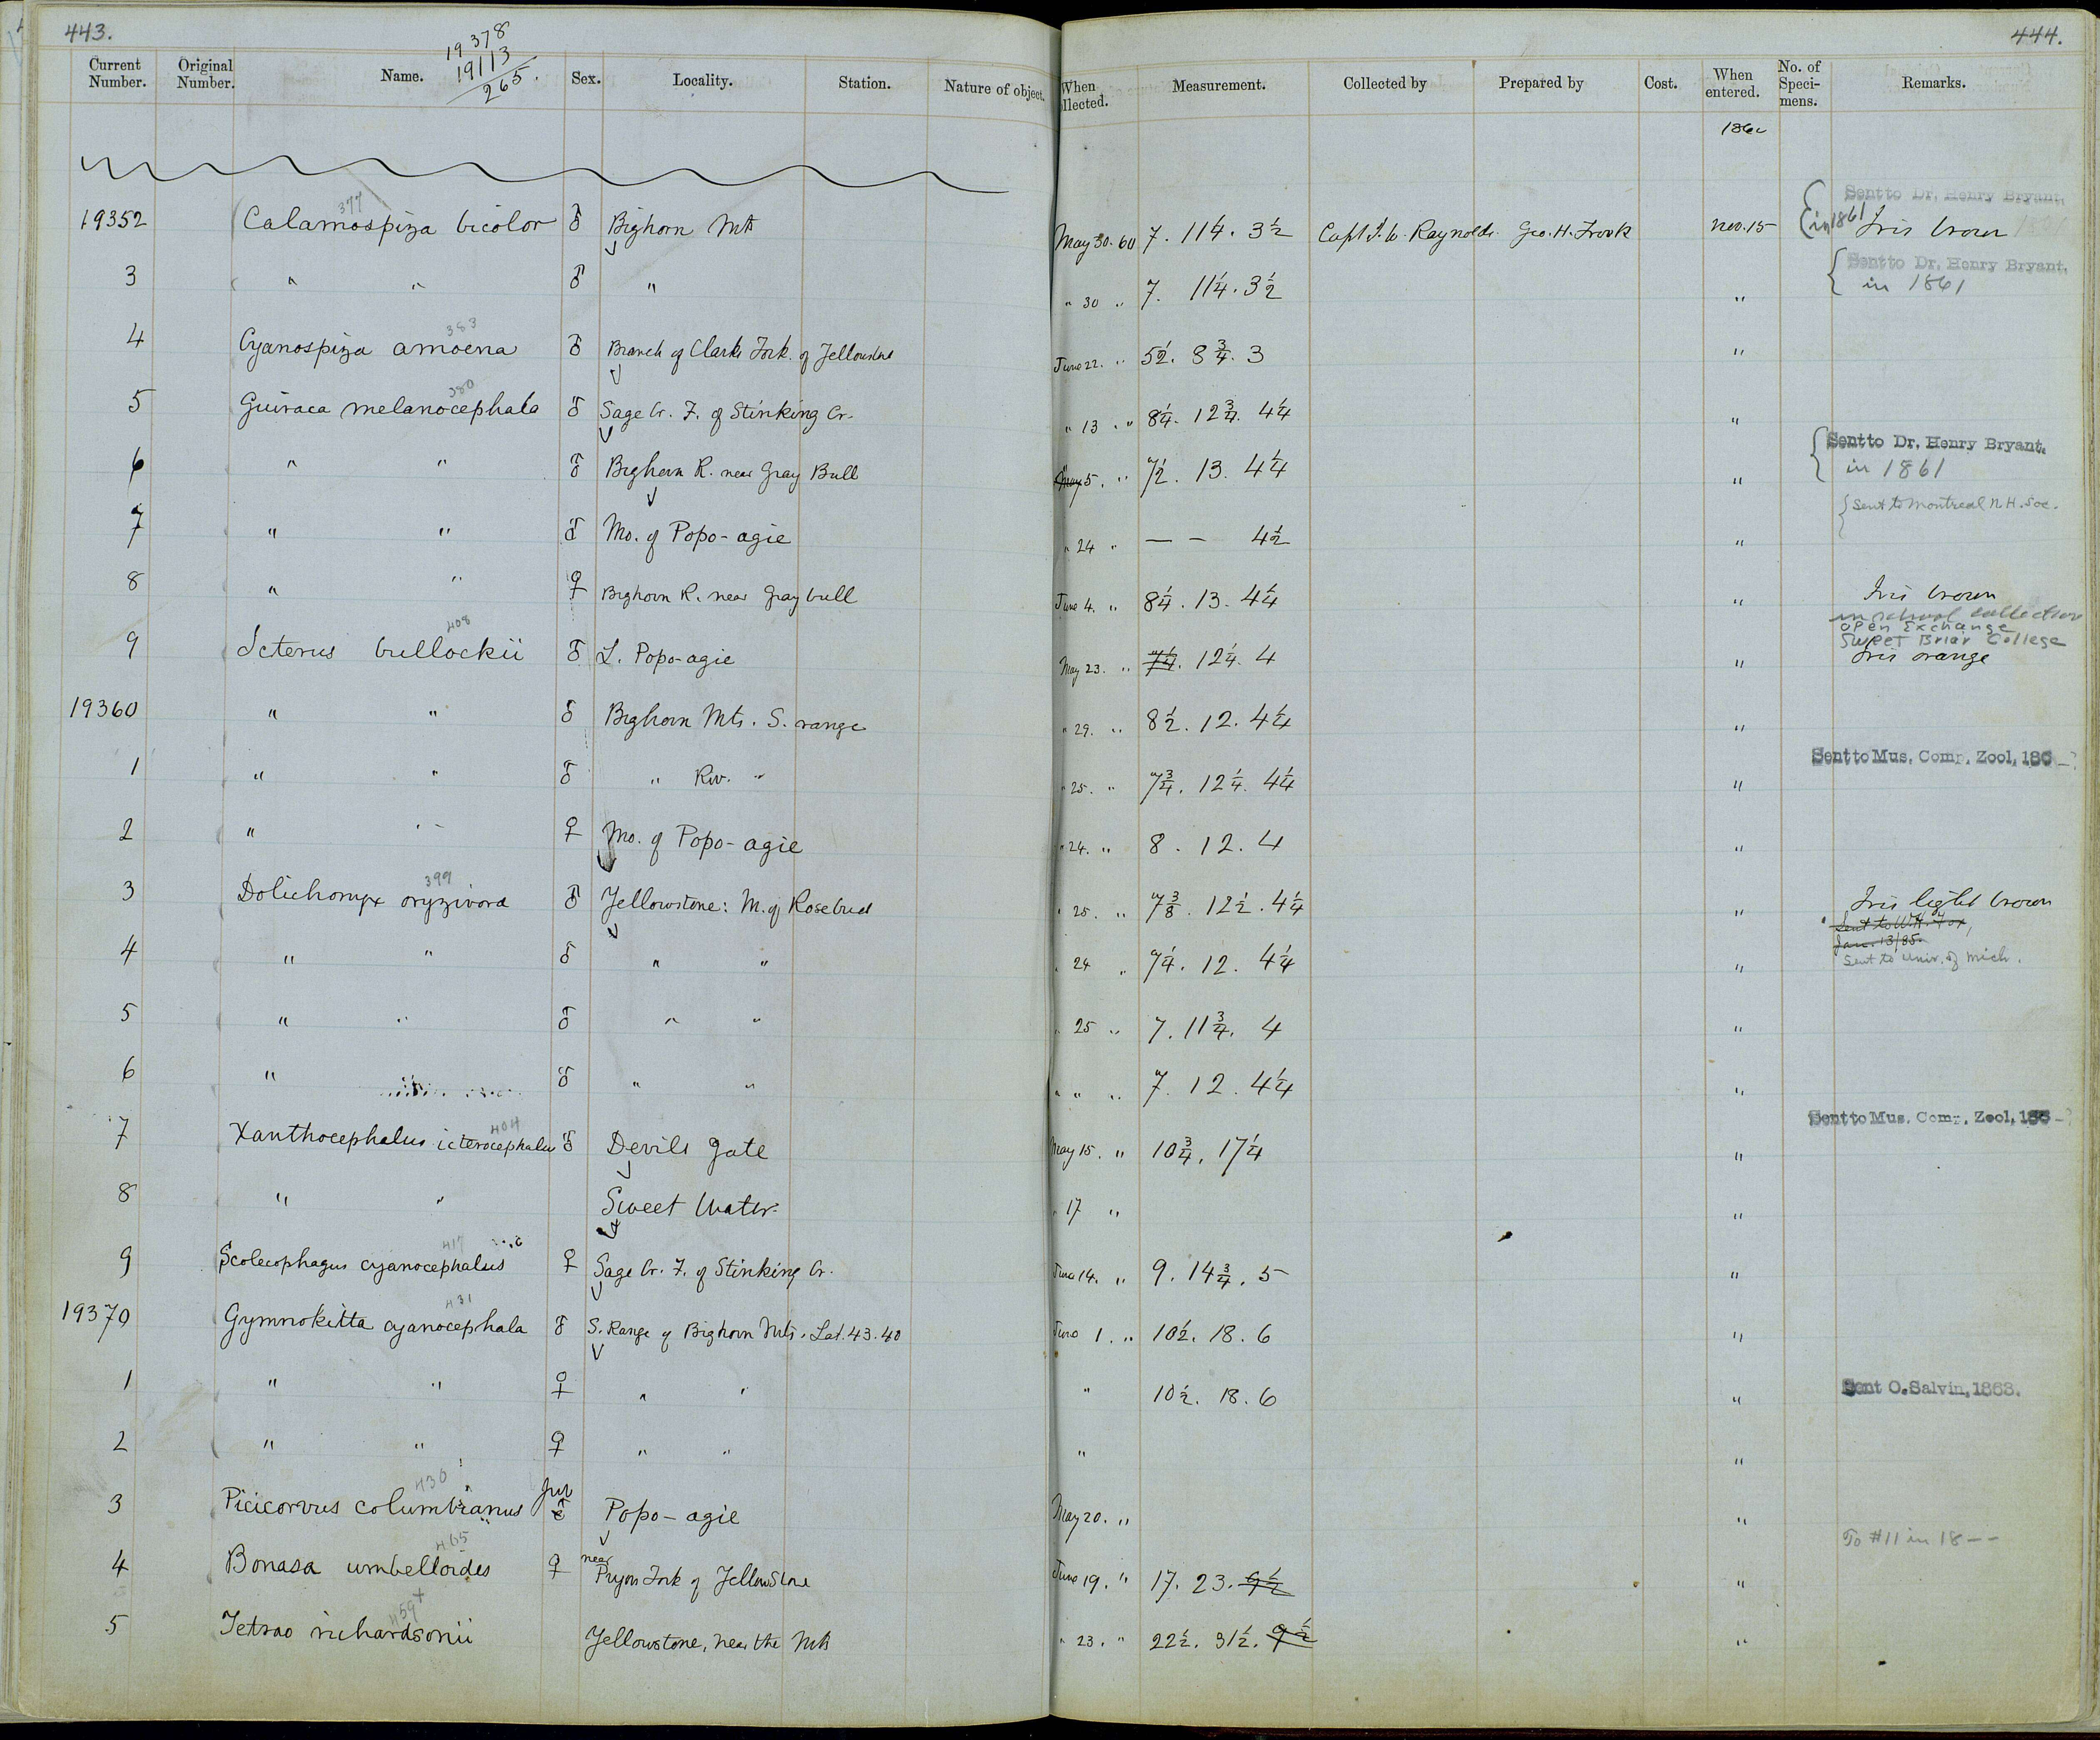 443.
19378
19113
265.
Current Number. Original Number. Name. Sex. Locality. Station. Nature of object.
19352 Calamospiza bicolor 377 ♂ Bighorn Mts
3 " " ♂ "
4 Cyanospiza amoena 383 ♂ Branch of Clarks Fork of Yellowstone
5 Guiraca melanocephala 380 ♂ Sage Cr. F. of Stinking Cr.
6 " " ♂ Bighorn R. near Gray Bull
7 " " ♂ Mo. of Popo-agie
8 " " ♀ Bighorn R. near Graybull
9 Icterus bullockii 408 ♂ L. Popo-agie
19360 " " ♂ Bighorn Mts. S. range
1 " " ♂ " Riv. "
2 " " ♀ Mo. of Popo-agie
3 Dolichonyx oryzivora 399 ♂ Yellowstone: M. of Rosebud
4 " " ♂ " "
5 " " ♂ " "
6 " " ♂ " "
7 Xanthocephalus icterocephalus 404 ♂ Devils Gate
8 " " Sweet Water
9 Scolecophagus cyanocephalus 417 ♀ Sage Cr. F. of Stinking Cr.
19370 Gymnokitta cyanocephala 431 ♂ S. Range of Bighorn Mts. Lat. 43.40
1 " " ♀ " "
2 " " ♀ " "
3 Picicorvus columbianus 430 Juv ♂ Popo-agie
4 Bonasa umbelloides 465 ♀ near Pryor Fork of Yellowstone
5 Tetrao richardsonii 459 + Yellowstone, near the Mts
444.
When ollected. Measurement. Collected by Prepared by Cost. When entered. No. of Specimens. Remarks.
Sent to Dr. Henry Bryant.
May 30. 60 7. 11¼. 3½ Capt. J. W. Raynolds. Geo. H. Trook Nov. 15 in 1861 Iris brown
Sent to Dr. Henry Bryant.
" 30 " 7. 11¼. 3½ " in 1861
June 22. " 5½. 8¾. 3 "
" 13 " 8¼. 12¾. 4¼ "
Sent to Dr. Henry Bryant.
May 5. " 7½. 13. 4¼ " in 1861
Sent to Montreal N.H. Soc.
" 24 " — — 4½ "
June 4. " 8¼. 13. 4¼ " Iris brown
in school collection
Open Exchange
Sweet Briar College
May 23. " 7¼. 12¼. 4 " Iris orange
" 29. " 8½. 12. 4¼ "
Sent to Mus. Comp. Zool, 186–?
" 25. " 7¾. 12¼. 4¼ "
" 24. " 8. 12. 4 "
" 25. " 7⅜. 12½. 4¼ " Iris light brown
Sent to W.H. Fox,
Jan. 13/85.
" 24 " 7¼. 12. 4¼ " Sent to Univ. of Mich.
" 25 " 7. 11¾. 4 "
" " " 7. 12. 4¼ "
Sent to Mus. Comp. Zool, 186–?
May 15. " 10¾. 17¼ "
" 17 " "
June 14. " 9. 14¾. 5 "
June 1. " 10½. 18. 6 "
" 10½. 18. 6 " Sent O. Salvin, 1868.
" "
May 20. " "
To #11 in 18--
June 19. " 17. 23. 9½ "
" 23. " 22½. 31½. 9½ "